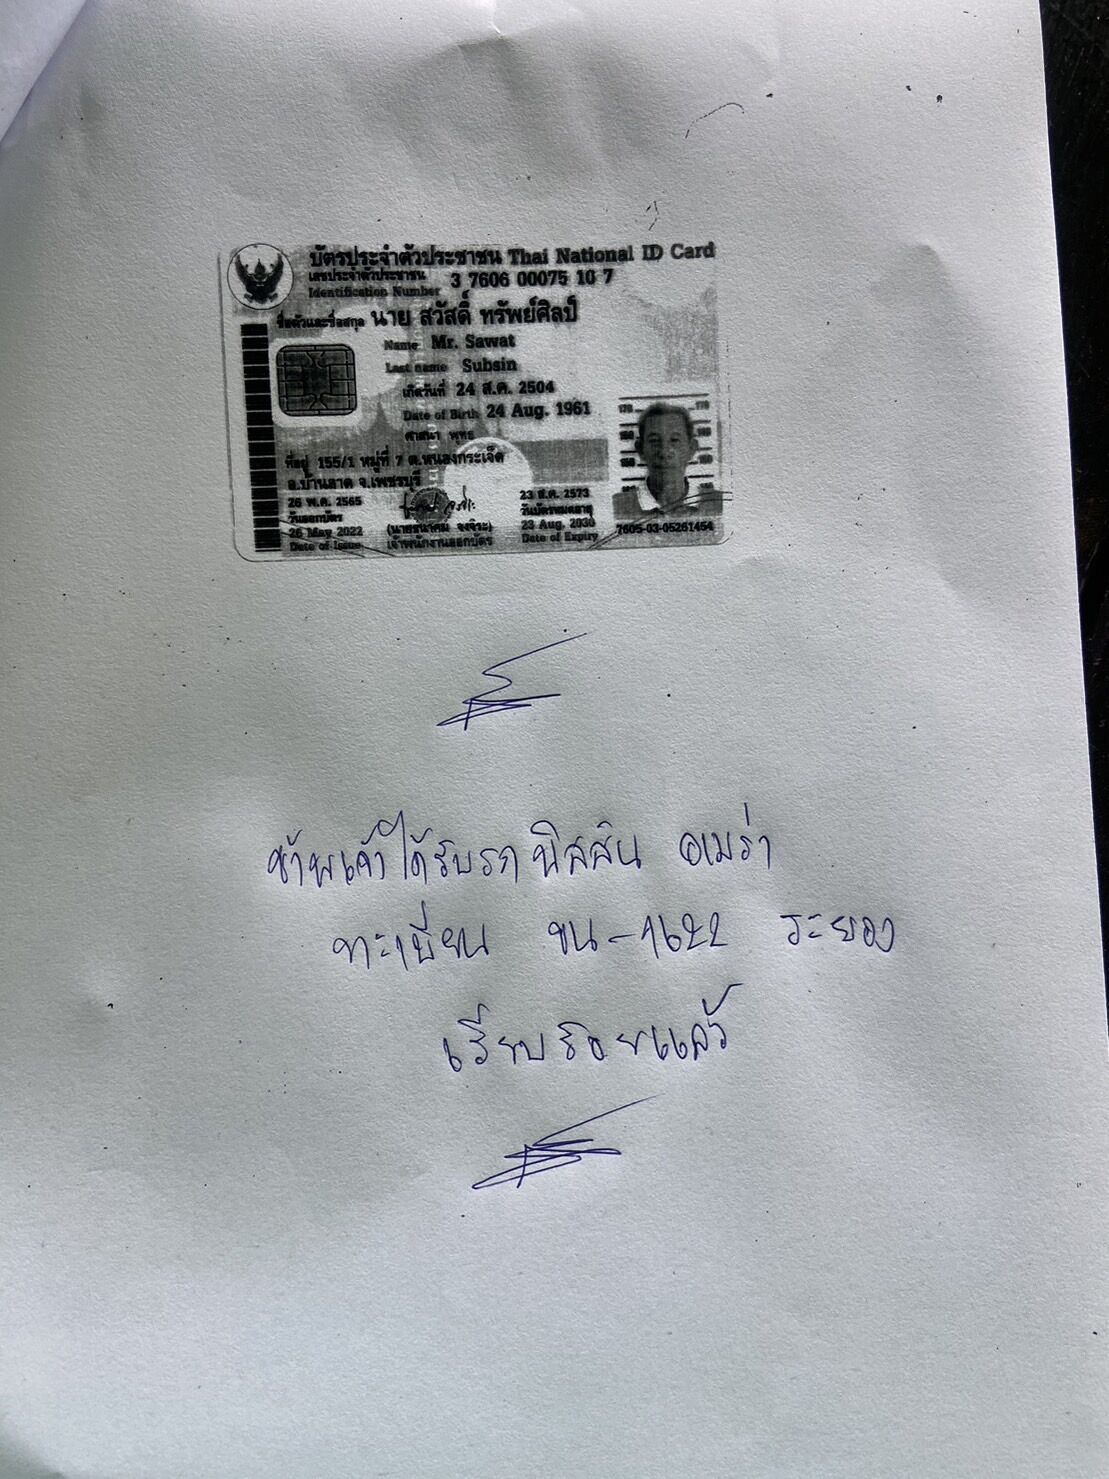 บัตรประจำตัวประชาชน Thai National ID Card
เลขประจำตัวประชาชน
Identification Number 3 7606 00075 10 7
ชื่อตัวและชื่อสกุล นาย สวัสดิ์ ทรัพย์ศิลป์
Name Mr. Sawat
Last name Subsin
เกิดวันที่ 24 ส.ค. 2504
Date of Birth 24 Aug. 1961
ศาสนา พุทธ
ที่อยู่ 155/1 หมู่ที่ 7 ต.หนองกระเจ็ด
อ.บ้านลาด จ.เพชรบุรี
26 พ.ค. 2565
วันออกบัตร
26 May 2022
Date of Issue
เจ้าพนักงานออกบัตร
23 ส.ค. 2573
วันบัตรหมดอายุ
23 Aug. 2030
Date of Expiry
170 170
160 160
150 150
7605-03-05261454
ข้าพเจ้าได้รับรถ นิสสัน อเมร่า
ทะเบียน ขน-1622 ระยอง
เรียบร้อยแล้ว